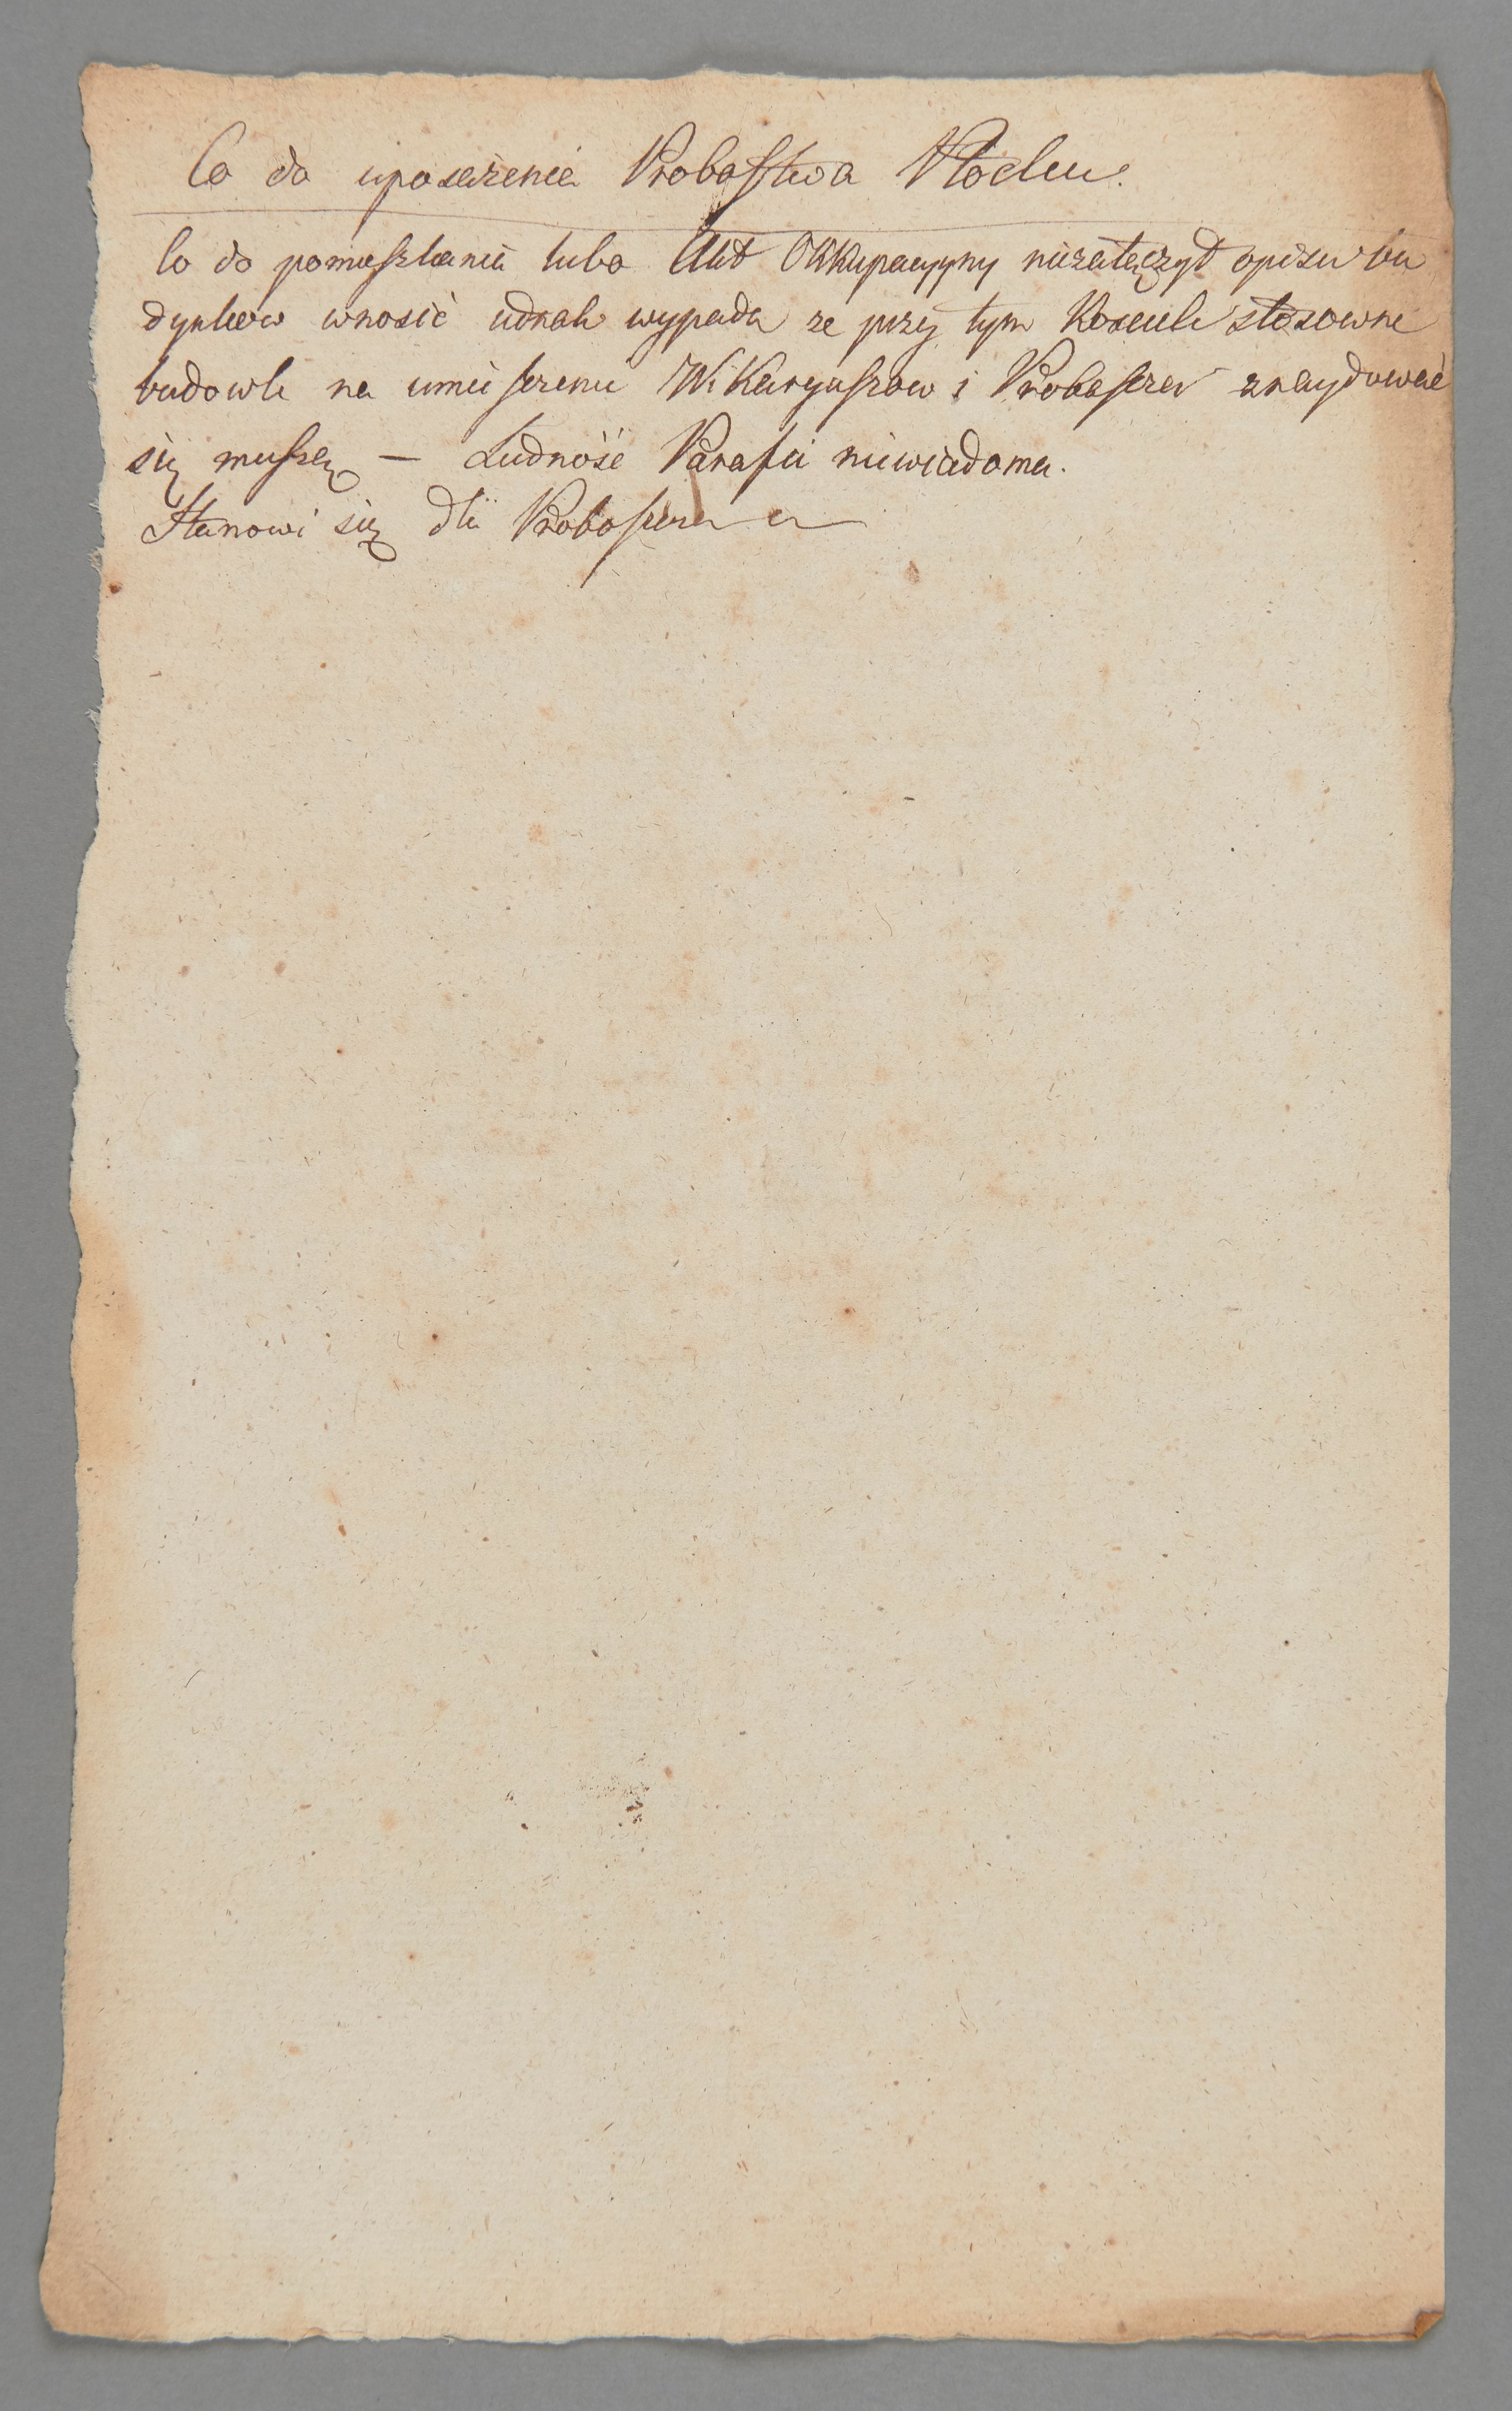 Co do uposażenia Probostwa Włocław.
Co do pomieszkania lubo Akt Okkupacyyny niezałączył opisu bu
dynkow wnosić iednak wypada ze przy tym Kosciele stosowne
budowle na umieszczenie Wikaryuszow i Proboszcza znaydować
się muszą — Ludność Parafii niewiadoma.
Stanowi się dla Proboszcza